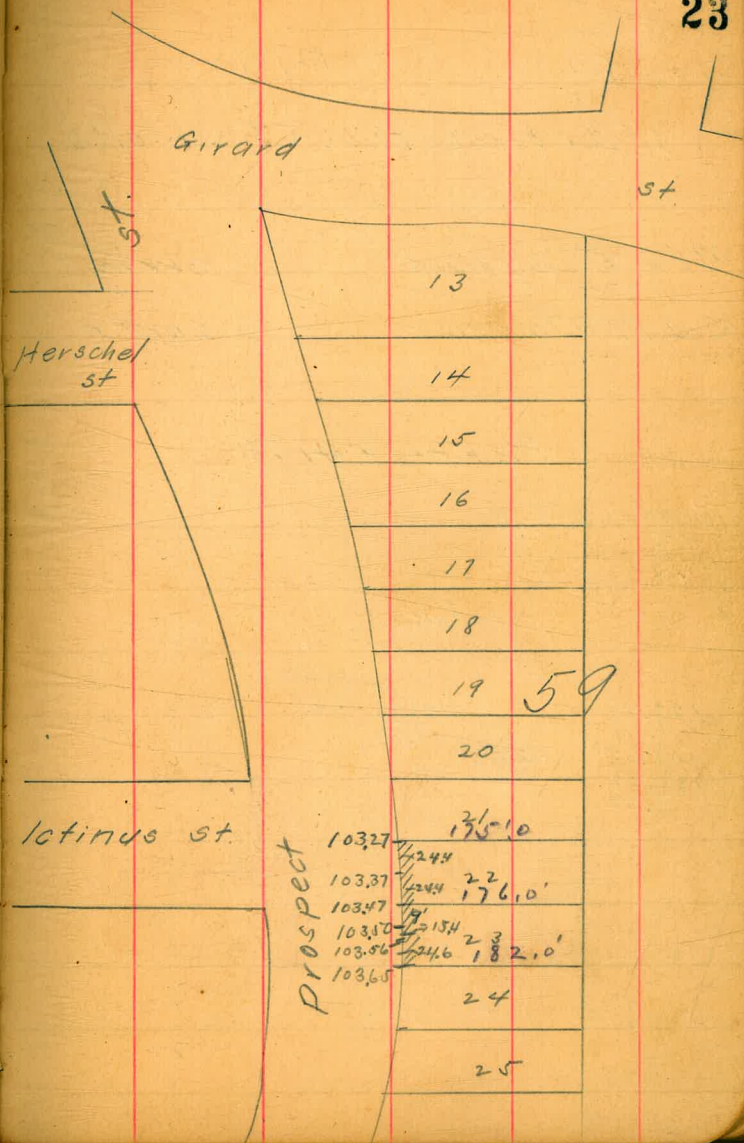 23
Girard
st.
st
13
Herschel
st
14
15
16
17
18
19
59
20
21
175.0
Ictinus st.
Prospect
103.27
24.4
103.37
24.4
22
176.0'
103.47
9'
103.50
15.4
23
103.56
24.6
182.0'
103.65
24
25